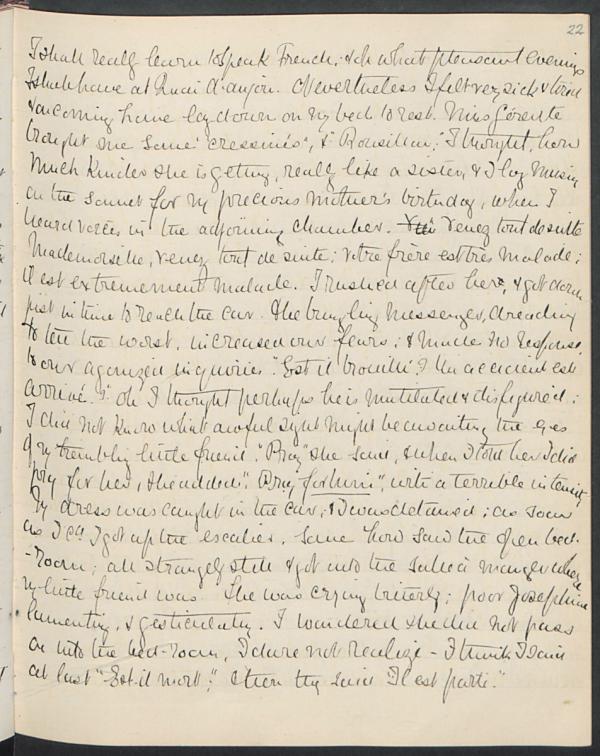 22
I shall really learn to speak French, & oh what pleasant evenings
I shall have at Quai d'anjou. Nevertheless I felt very sick & tired
& on coming home lay down on my bed to rest. Miss Gérente
brought me some "cressinés", & "Rousillon," I thought, how
much kinder she is getting, really like a sister, & I lay musing
on the sonnet for my precious mother's birthday, when I
heard voices in the adjoining chamber. Venez tout de suite
Mademoiselle, venez tout de suite; votre frère est très malade;
il est extremement malade. I rushed after her, & got down
just in time to reach the car. The bungling messenger, dreading
to tell the worst, increased our fears; & made no response
to our agonized inquiries "Est il brouillé? Un accident est
arrivé"? oh I thought perhaps he is mutilated & disfigured:
I did not know what awful sight might be awaiting the eyes
of my trembling little friend. "Pray" she said, & when I told her I did
pray for her, she added, "Pray for him", with a terrible intensity
My dress was caught in the car, & I was detained; as soon
as I cd I got up the escalier. Some how saw the open bed-
-room; all strangely still & got into the salle à manger where
my little friend was. She was crying bitterly; poor Josephine
lamenting, & gesticulating. I wondered she did not pass
on into the bed-room, I dare not realize - I think I said
at last "Est-il mort," & then they said "Il est parti."